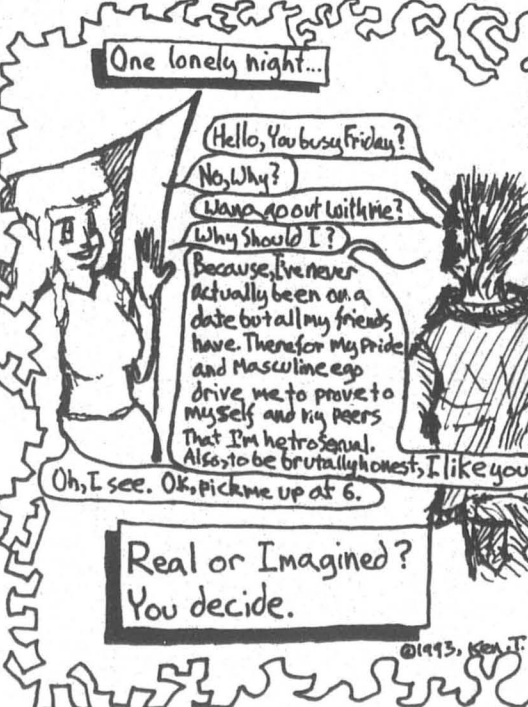 One lonely night...
Hello, You busy Friday?
No, Why?
Wana go out with me?
Why Should I?
Because, I've never
actually been on a
date but all my friends
have. Therefor my Pride
and Masculine ego
drive me to prove to
myself and my peers
That I'm hetrosexual.
Also, to be brutally honest, I like you
Oh, I see. OK, pick me up at 6.
Real or Imagined?
You decide.
©1993, Ken.T.